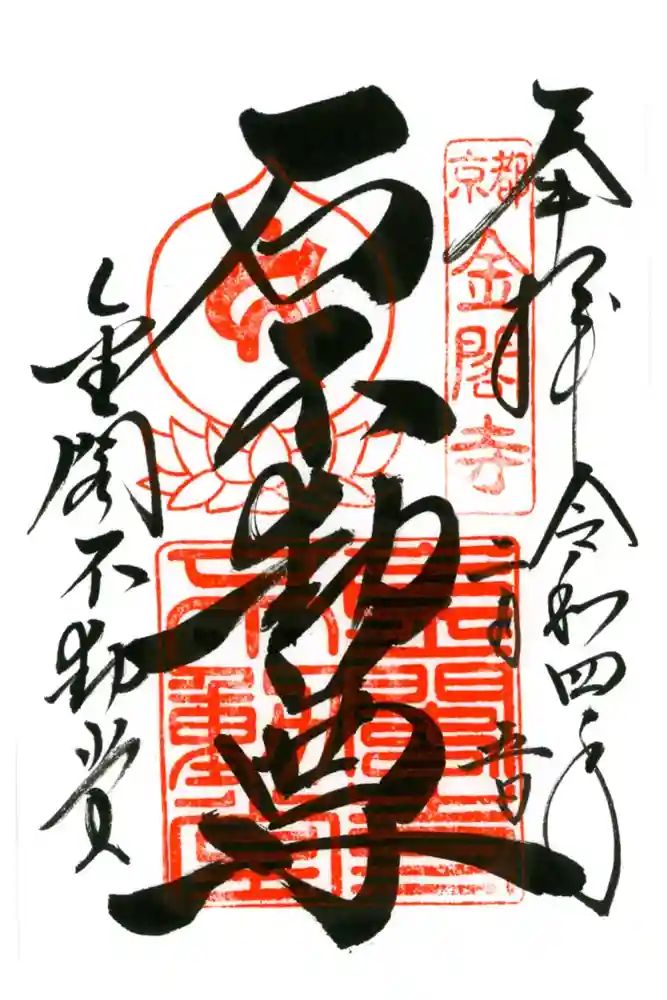 奉拝 令和四年
二月
京都
金閣寺
石不動尊
金閣不動堂